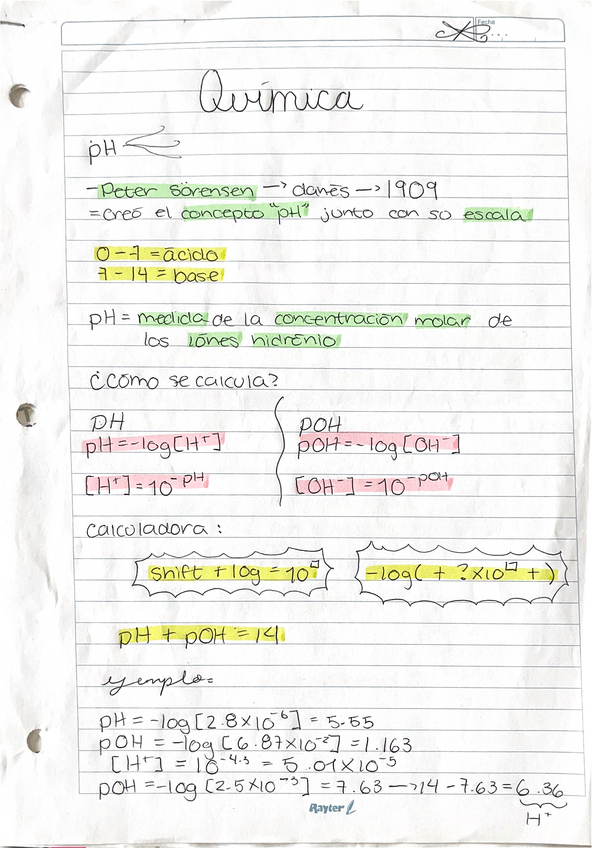 Fecha
Química
pH
- Peter Sörensen → danés → 1909
= Creó el concepto "pH" junto con su escala
0 - 7 = ácido
7 - 14 = base
pH = medida de la concentración molar de
los iónes hidrónio
¿Cómo se calcula?
pH
pH = -log [H⁺]
[H⁺] = 10⁻ᵖᴴ
pOH
pOH = -log [OH⁻]
[OH⁻] = 10⁻ᵖᴼᴴ
Calculadora :
Shift + log = 10^□
-log( + ? x10^□ + )
pH + pOH = 14
ejemplo=
pH = -log [2.8x10⁻⁶] = 5.55
pOH = -log [6.87x10⁻²] = 1.163
[H⁺] = 10^-4.3 = 5.01x10⁻⁵
= 7.63 → 14 - 7.63 = 6.36
H⁺
Rayter